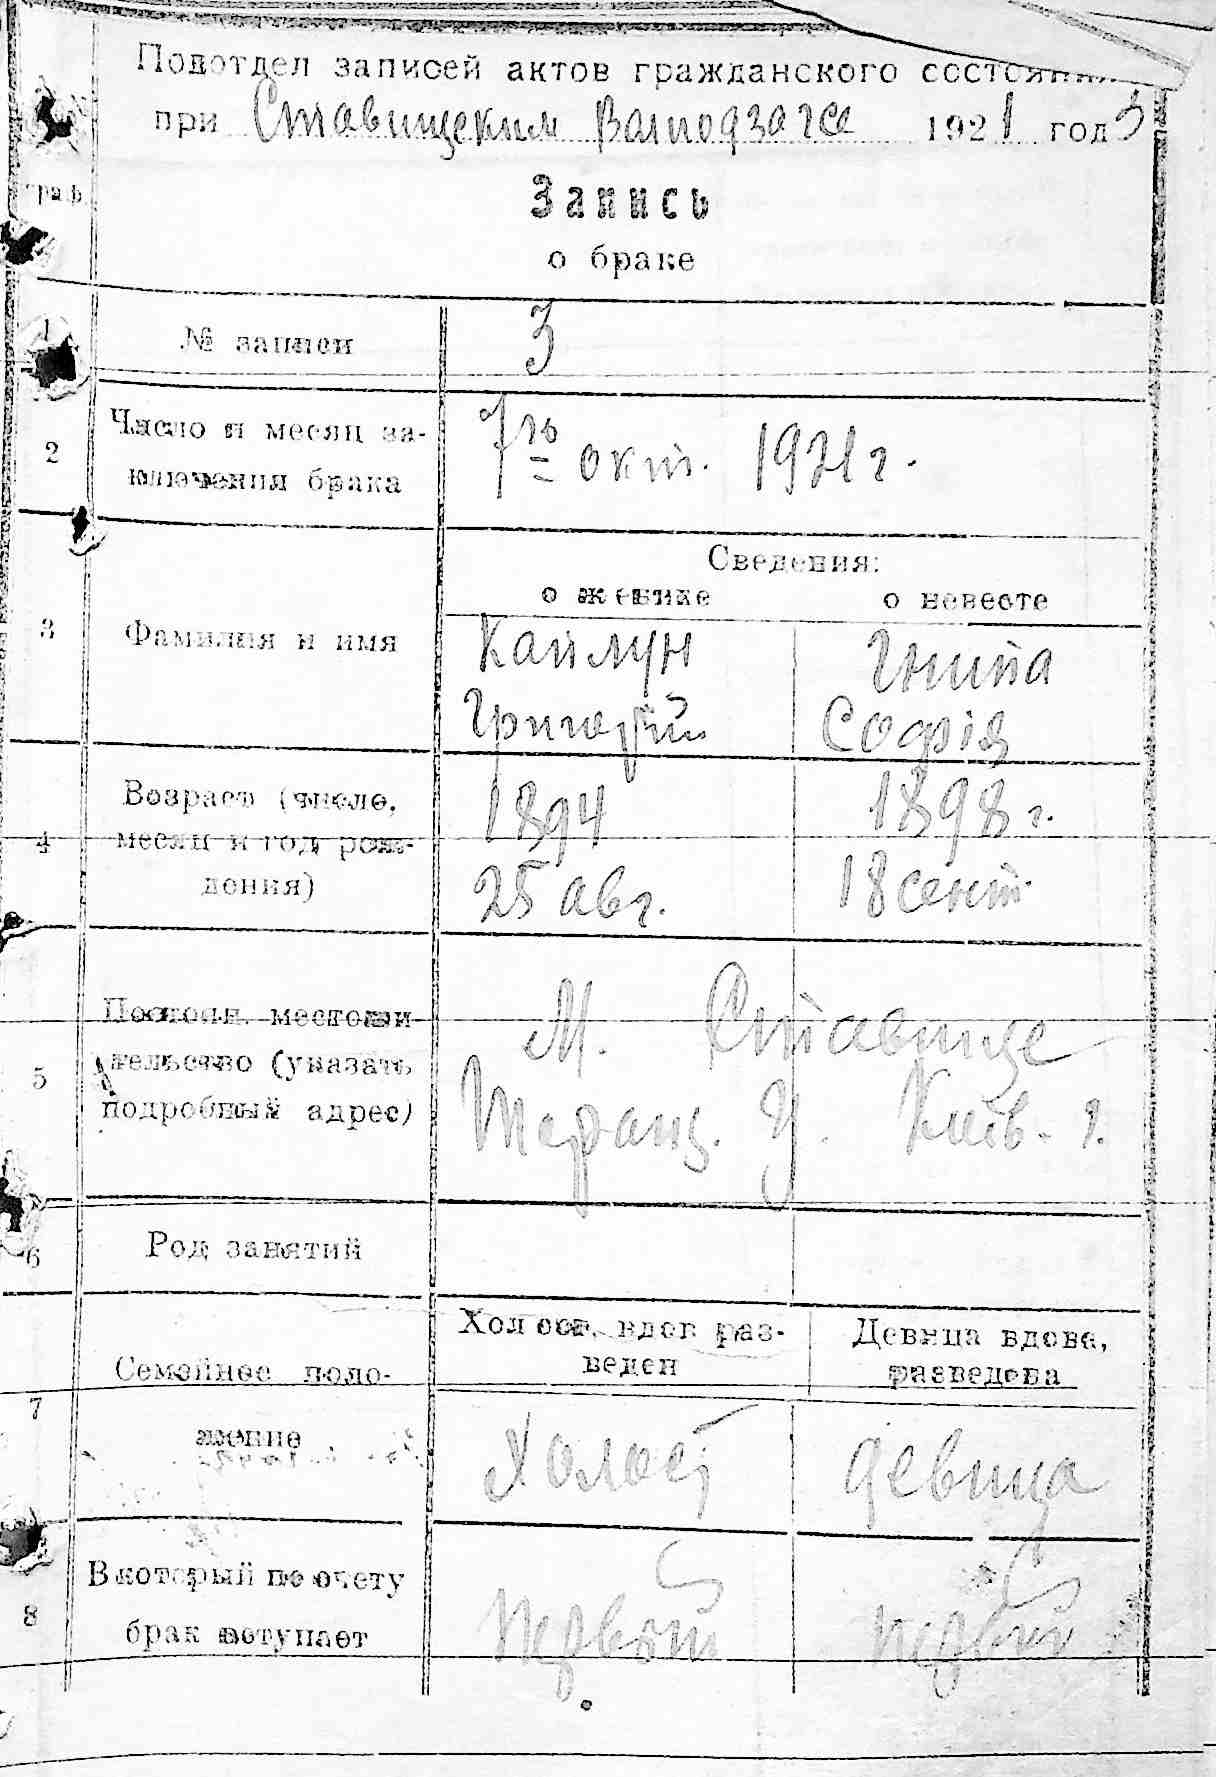 Подотдел записей актов гражданского состояния
при Ставищеским Валподзагсе 1921 год 3
граф.
Запись
о браке
1 № записи 3
2 Число и месяц за-
ключения брака
7го окт. 1921 г.
Сведения:
о женихе о невесте
3 Фамилия и имя
Кайлун Гнипа
Григорій Софія
4 Возраст (число,
месяц и год рож-
дения)
1894 1898 г.
25 авг. 18 сент.
5 Постоян. местожи-
тельство (указать
подробный адрес)
М. Ставище
Таращ. У. Київ. г.
6 Род занятий
Холост, вдов раз-
веден
Девица вдова,
разведена
7 Семейное поло-
жение
Холост девица
8 В который по счету
брак вступает
первый первый